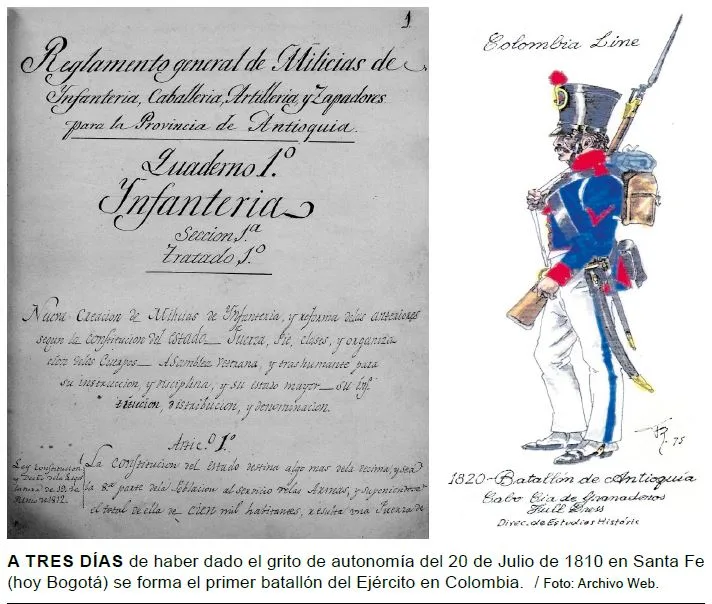 1
Reglamento general de Milicias de
Infanteria, Caballeria, Artilleria, y Zapadores
para la Provincia de Antioquia.
Quaderno 1.º
Infanteria
Seccion 1.ª
Tratado 1.º
Nueva Creacion de Milicias de Infanteria, y reforma delas anteriores
segun la constitucion del estado Fuerza, Pie, clases, y organiza
cion delos Cuerpos Asamblea Veterana, y trashumante para
su instruccion, y disciplina, y su estado mayor su
distribucion, y denominacion.
Artic.º 1.º
Ley constitucion
La constitucion del estado destina algo mas dela decima, y sea
la 8.ª parte dela Poblacion al servicio delas Armas, y suponiendo
el total de ella de cien mil habitantes, resulta una Fuerza de
Colombia Line
75
1820-Batallón de Antioquia
Cabo Cía de Granaderos
Full Dress
Direc. de Estudios Históric
A TRES DÍAS de haber dado el grito de autonomía del 20 de Julio de 1810 en Santa Fe
(hoy Bogotá) se forma el primer batallón del Ejército en Colombia. / Foto: Archivo Web.